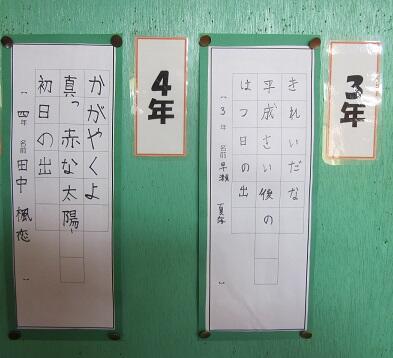 3年
きれいだな
平成さい後の
はつ日の出
〔 3年 名前 早瀬 〕
4年
かがやくよ
真っ赤な太陽
初日の出
〔 四年 名前 田中 楓恋 〕